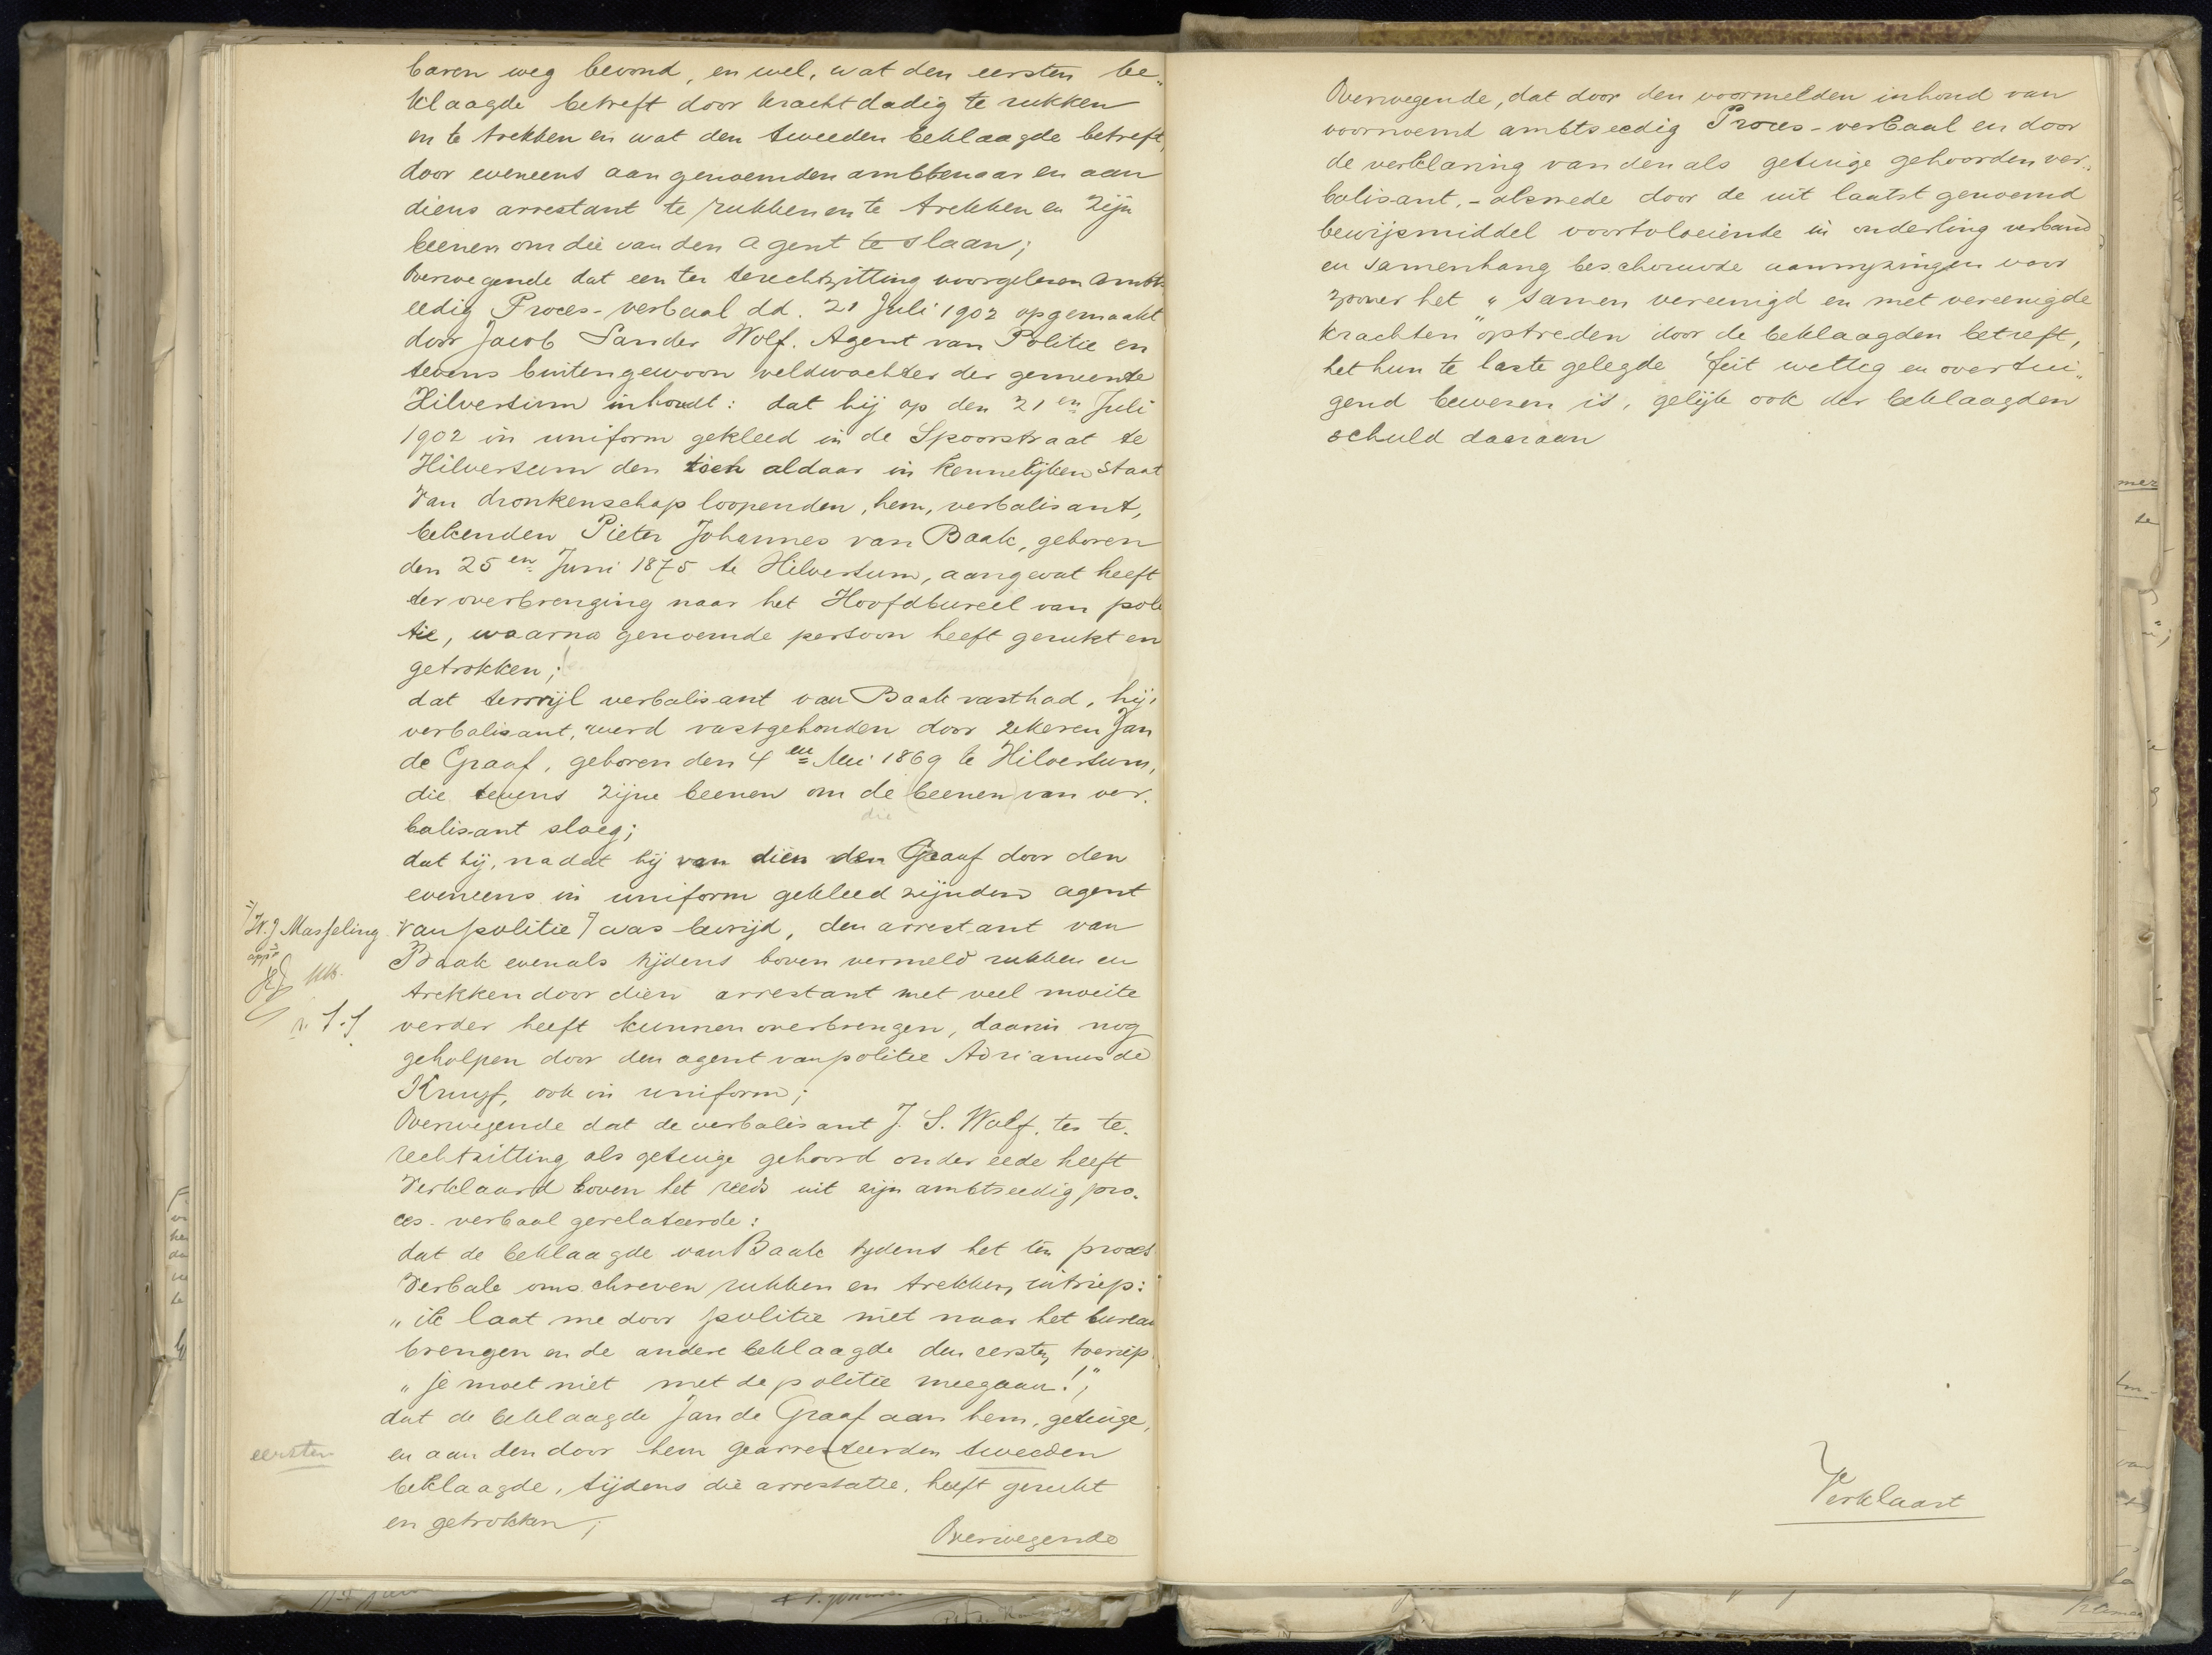 baren weg bevond, en wel, wat den eersten be„
klaagde betreft door krachtdadig te rukken
en te trekken en wat den tweeden beklaagde betreft,
door eveneens aan genoemden ambtenaar en aan
diens arrestant te rukken en te trekken en zijn
beenen om die van den agent te slaan;
Overwegende dat een ter terechtzitting voorgelezen ambts
eedig Proces-verbaal dd. 21 Juli 1902 opgemaakt
door Jacob Sander Wolf. Agent van Politie en
tevens buitengewoon veldwachter der gemeente
Hilversum inhoudt: dat hij op den 21en Juli
1902 in uniform gekleed in de Spoorstraat te
Hilversum den zich aldaar in kennelijken staat
van dronkenschap loopenden, hem, verbalisant,
bekenden Pieter Johannes van Baak, geboren
den 25en Juni 1875 te Hilversum, aangevat heeft
ter overbrenging naar het Hoofdbureel van poli
tie, waarna genoemde persoon heeft gerukt en
getrokken;
dat terwijl verbalisant van Baak vasthad, hij,
verbalisant, werd vastgehouden door zekeren Jan
de Graaf, geboren den 4en Mei 1869 te Hilversum,
die tevens zijne beenen om de (beenen) van ver„
die
balisant sloeg;
dat hij, nadat hij van dien de Graaf door den
eveneens in uniform gekleed zijnden agent
W. J Masseling
van politie was bevrijd, den arrestant van
appr
Baak evenals tijdens boven vermeld rukken en
trekken door dien arrestant met veel moeite
verder heeft kunnen overbrengen, daarin nog
geholpen door den agent van politie Adrianus de
Kruyf, ook in uniform;
Overwegende dat de verbalisant J. S. Wolf, ter te„
rechtzitting als getuige gehoord onder eede heeft
verklaard boven het reeds uit zijn ambtseedig pro„
ces-verbaal gerelateerde:
dat de beklaagde van Baak tydens het ten proces
verbale omschreven rukken en trekken, uitriep:
„ik laat me door politie niet naar het bureau
brengen en de andere beklaagde den eersten toeriep
„je moet niet met de politie meegaan!";
dat de beklaagde Jan de Graaf aan hem, getuige,
eersten
en aan den door hem gearresteerden tweeden
beklaagde, tijdens die arrestatie, heeft gerukt
en getrokken;
Overwegende
Overwegende, dat door den voormelden inhoud van
voornoemd ambtseedig Proces-verbaal en door
de verklaring van den als getuige gehoorden ver„
balisant, - alsmede door de uit laatst genoemd
bewijsmiddel voortvloeiende in onderling verband
en samenhang beschouwde aanwyzingen voor
zoover het „samen vereenigd en met vereenigde
krachten" optreden door de beklaagden betreft,
het hun te laste gelegde feit wettig en overtui„
gend bewezen is, gelijk ook der beklaagden
schuld daaraan
Verklaart